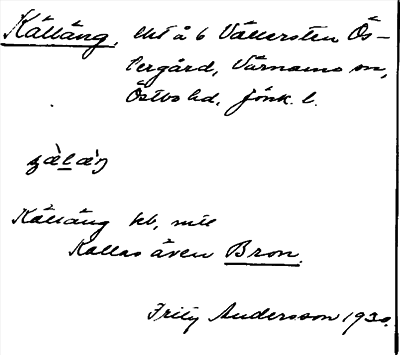 Källäng, lht å 6 Vällersten Ös-
tergård, Värnamo sn,
Östbo hd, Jönk. l.
Källäng hb, mtl
Kallas även Bron.
Fritz Andersson 1930.